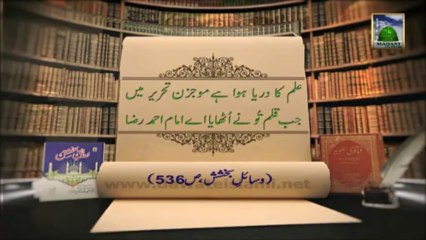 MADANI
علم کا دریا ہوا ہے موجزن تحریر میں
جب قلم تُو نے اُٹھایا اے امام احمد رضا
(وسائلِ بخشش، ص536)